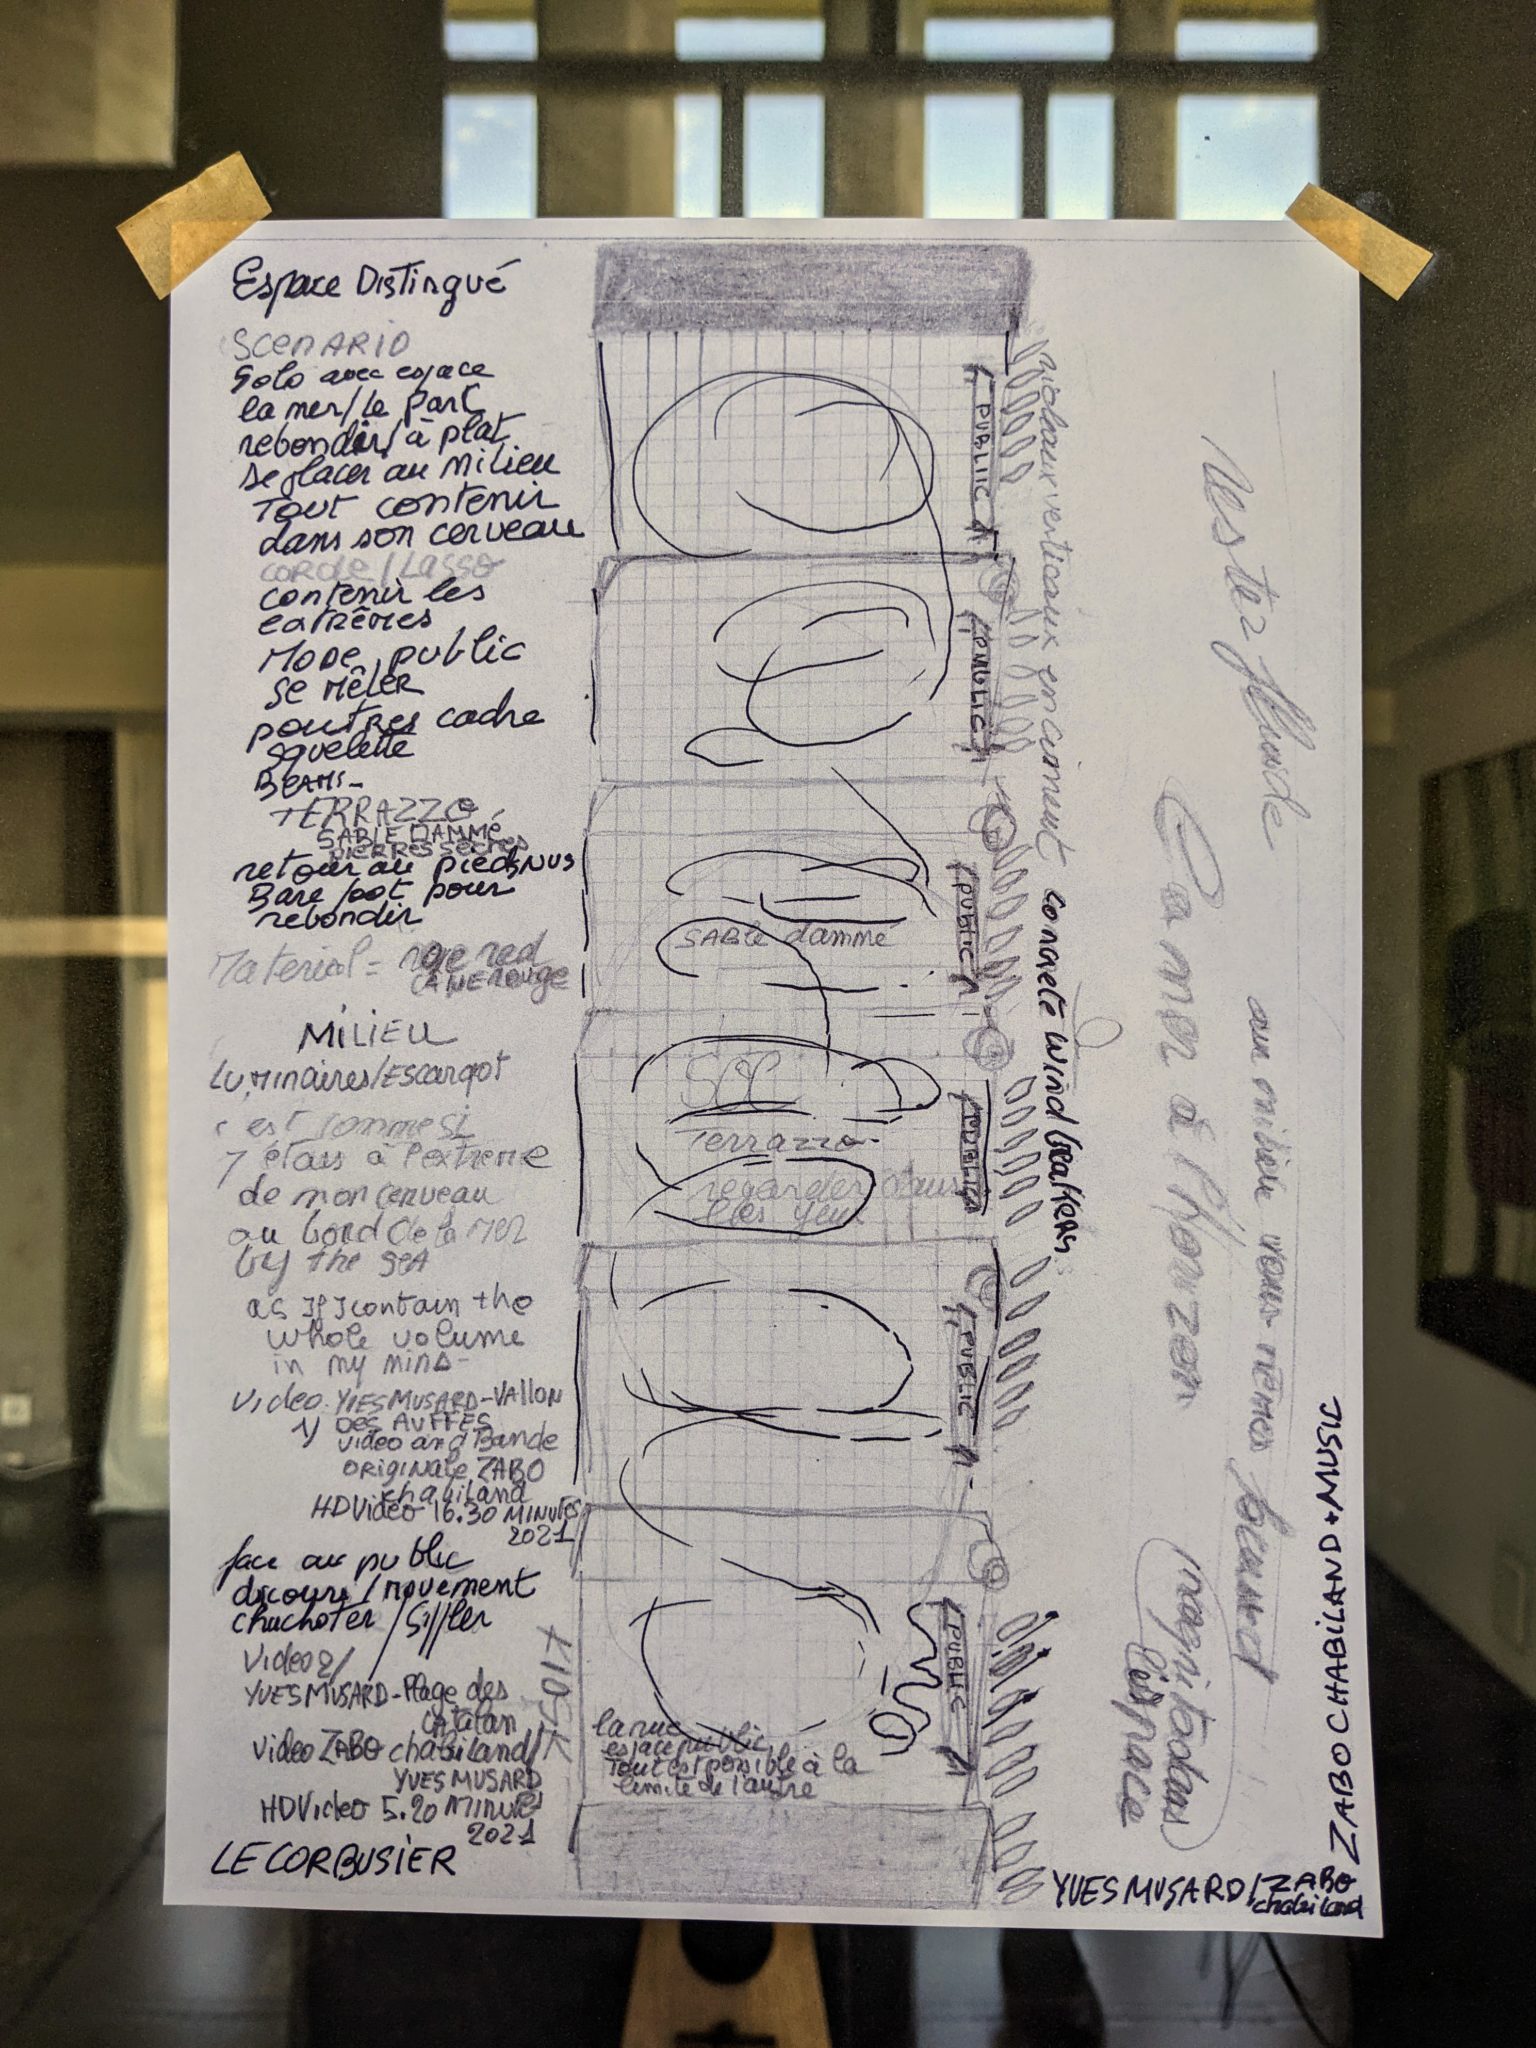 Espace Distingué
SCENARIO
Solo avec espace
la mer/le parc
rebondir/à plat
se placer au milieu
Tout contenir
dans son cerveau
corde/Lasso
contenir les
extrêmes
Mode public
se mêler
poutres cadre
squelette
Beams-
TERRAZZO
SABLE DAMMÉ
pierres sèches
retour au pieds NUS
Bare foot pour
rebondir
Material = rope red
MILIEU
Luminaires/Escargot
c'est comme si
j'étais à l'extreme
de mon cerveau
au bord de la mer
by the sea
as If I contain the
whole volume
in my mind-
Video. YVES MUSARD-Vallon
1) Des AUFFES
video and Bande
originale ZABO
chabiland
HDVideo 16.30 MINUTES
2021
face au public
discours/movement
chuchoter/siffler
Video 2/
YVES MUSARD-Plage des
catalan
video ZABO chabiland/
YVES MUSARD
HDVideo 5.20 MINUTES
2021
LE CORBUSIER
PUBLIIC
PUBLIC
PUBLIC
SABLE damme
PUBLIC
Terrazzo.
regarder dans
les yeux
PUBLIC
PUBLIC
KIOSK
la rue
espace public
Tout est possible à la
limite de l'autre
verticaux en ciment concrete wind breakers
Rester fluide
au milieu vous-mêmes
à l'Horizon
Espace
ZABO CHABILAND + MUSIC
YVES MUSARD/ZABO
chabiland